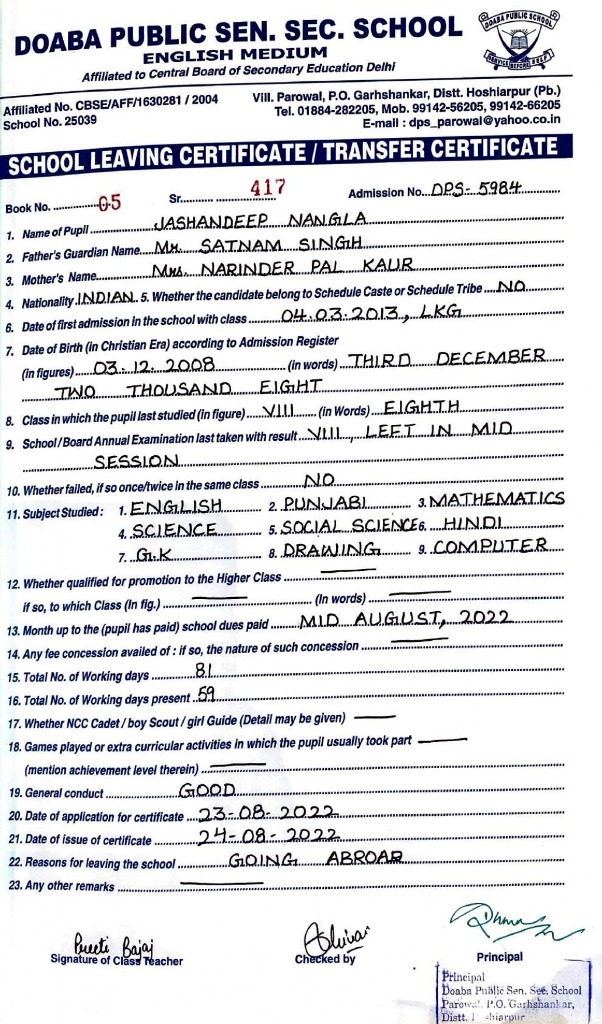 DOABA PUBLIC SEN. SEC. SCHOOL
ENGLISH MEDIUM
Affiliated to Central Board of Secondary Education Delhi
DOABA PUBLIC SCHOOL
SERVICE BEFORE SELF
Affiliated No. CBSE/AFF/1630281 / 2004
School No. 25039
Vill. Parowal, P.O. Garhshankar, Distt. Hoshiarpur (Pb.)
Tel. 01884-282205, Mob. 99142-56205, 99142-66205
E-mail : dps_parowal@yahoo.co.in
SCHOOL LEAVING CERTIFICATE / TRANSFER CERTIFICATE
Book No. 05 Sr. 417 Admission No. DPS-5984
1. Name of Pupil JASHANDEEP NANGLA
2. Father's Guardian Name Mr. SATNAM SINGH
3. Mother's Name Mrs. NARINDER PAL KAUR
4. Nationality INDIAN 5. Whether the candidate belong to Schedule Caste or Schedule Tribe NO
6. Date of first admission in the school with class 04.03.2013, LKG
7. Date of Birth (in Christian Era) according to Admission Register
(in figures) 03.12.2008 (in words) THIRD DECEMBER
TWO THOUSAND EIGHT
8. Class in which the pupil last studied (in figure) VIII (in Words) EIGHTH
9. School / Board Annual Examination last taken with result VIII, LEFT IN MID
SESSION
10. Whether failed, if so once/twice in the same class NO
11. Subject Studied : 1. ENGLISH 2. PUNJABI 3. MATHEMATICS
4. SCIENCE 5. SOCIAL SCIENCE 6. HINDI
7. G.K 8. DRAWING 9. COMPUTER
12. Whether qualified for promotion to the Higher Class
if so, to which Class (In fig.) (In words)
13. Month up to the (pupil has paid) school dues paid MID AUGUST, 2022
14. Any fee concession availed of : if so, the nature of such concession
15. Total No. of Working days 81
16. Total No. of Working days present 59
17. Whether NCC Cadet / boy Scout / girl Guide (Detail may be given)
18. Games played or extra curricular activities in which the pupil usually took part
(mention achievement level therein)
19. General conduct GOOD
20. Date of application for certificate 23-08-2022
21. Date of issue of certificate 24-08-2022
22. Reasons for leaving the school GOING ABROAD
23. Any other remarks
Preeti Bajaj
Signature of Class Teacher
Checked by
Principal
Principal
Doaba Public Sen. Sec. School
Parowal P.O. Garhshankar,
Distt. Hoshiarpur